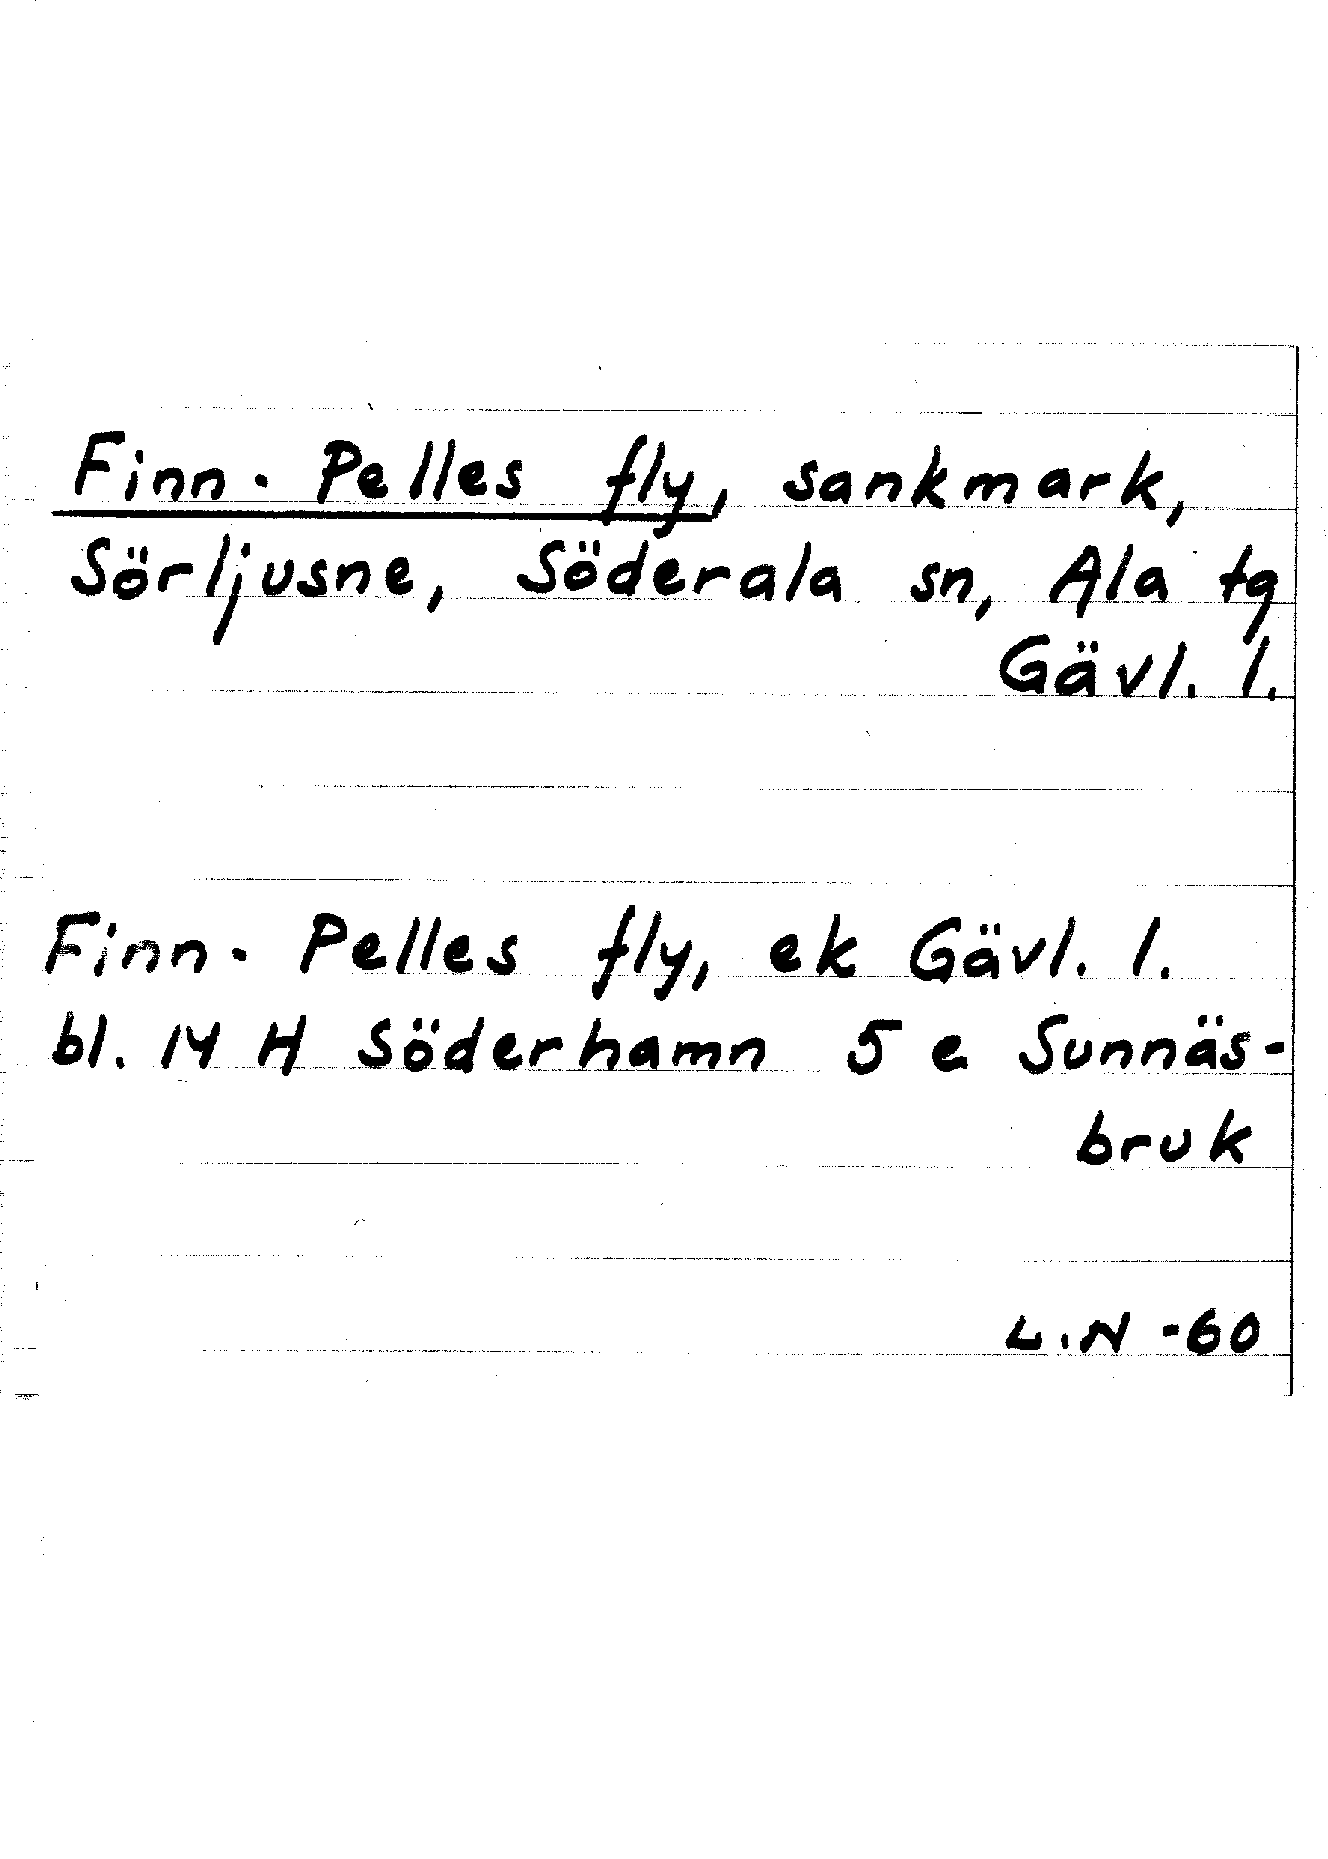 Finn-Pelles fly, sankmark,
Sörljusne, Söderala sn, Ala tg
Gävl. l.
Finn-Pelles fly, ek Gävl. l.
bl. 14 H Söderhamn 5 e Sunnäs-
bruk
L.N -60